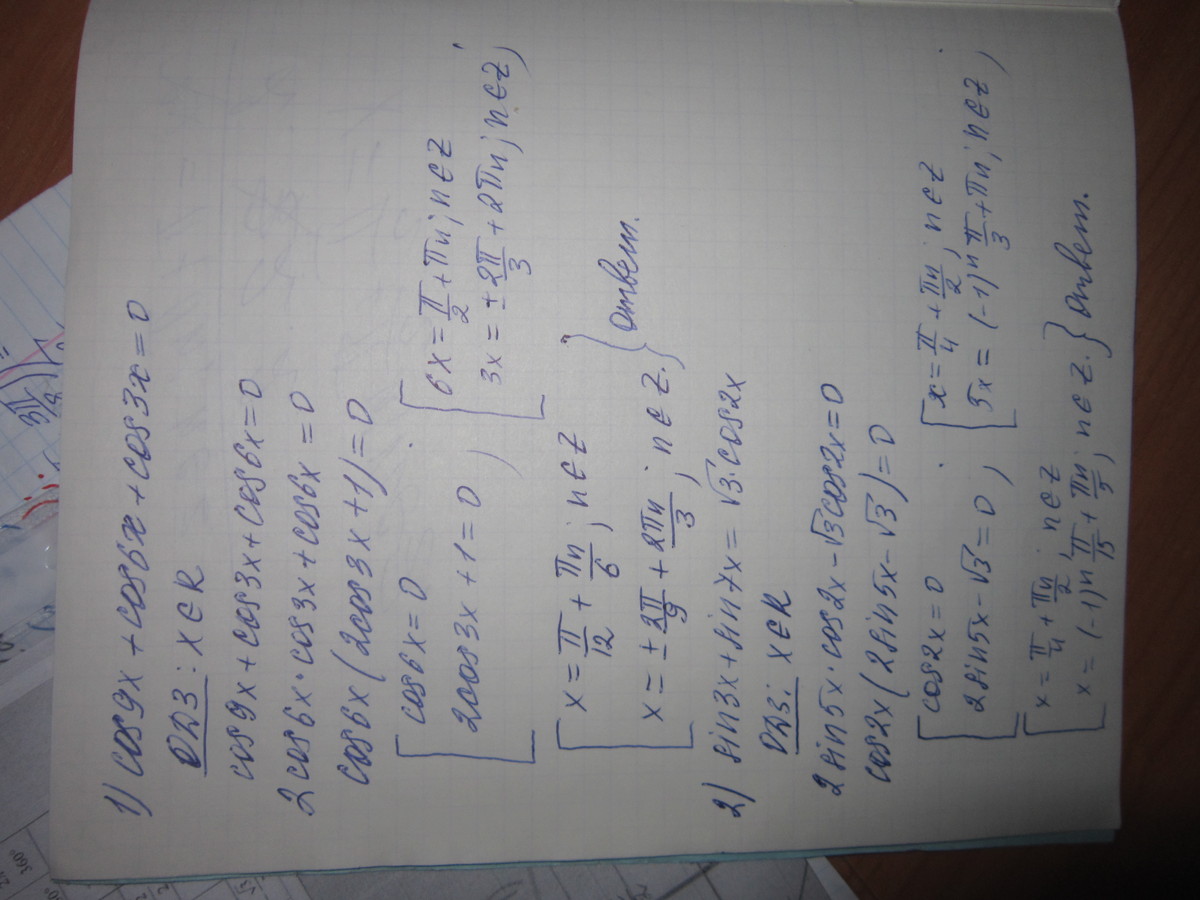 1) cos9x + cos6x + cos3x = 0
ОДЗ: x∈R
cos9x + cos3x + cos6x = 0
2cos6x·cos3x + cos6x = 0
cos6x(2cos3x + 1) = 0
[ cos6x = 0 [ 6x = π/2 + πn; n∈Z
2cos3x + 1 = 0 , 3x = ± 2π/3 + 2πn; n∈Z ,
[ x = π/12 + πn/6; n∈Z
x = ± 2π/9 + 2πn/3; n∈Z. } ответ.
2) sin3x + sin7x = √3·cos2x
ОДЗ: x∈R
2sin5x·cos2x - √3cos2x = 0
cos2x(2sin5x - √3) = 0
[ cos2x = 0 [ x = π/4 + πn/2; n∈Z
2sin5x - √3 = 0 , 5x = (-1)ⁿ π/3 + πn; n∈Z ,
[ x = π/4 + πn/2; n∈Z
x = (-1)ⁿ π/15 + πn/5; n∈Z. } ответ.
360°